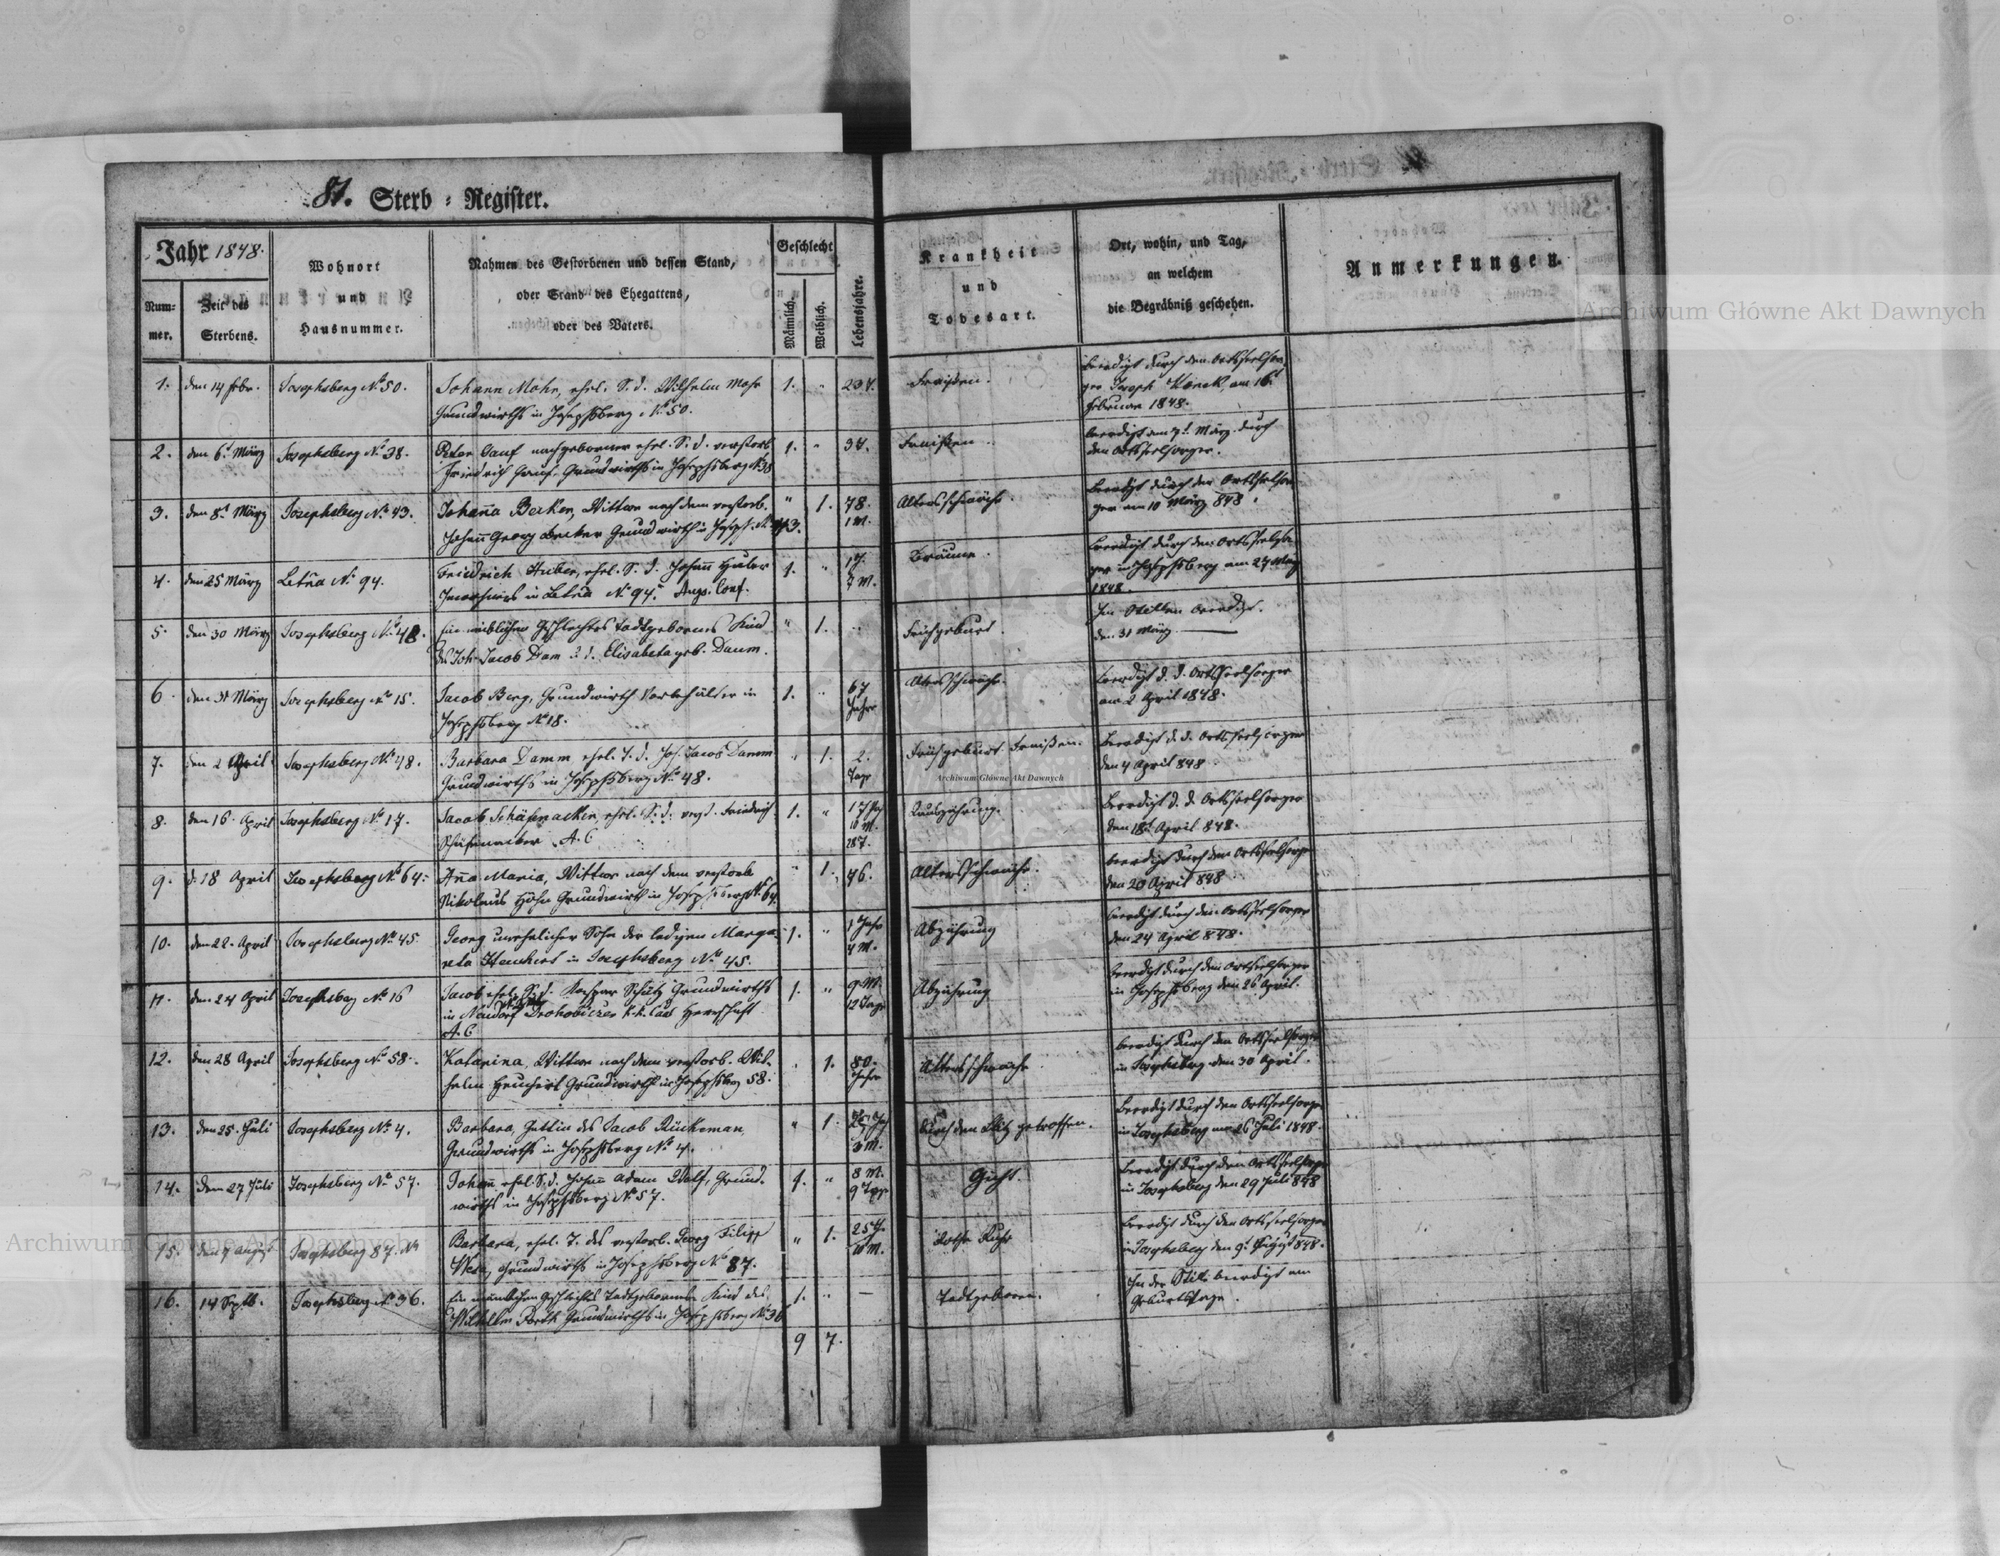 81. Sterb - Register.
Jahr 1848.
Num-
mer.
Zeit des
Sterbens.
Wohnort
und
Hausnummer.
Nahmen des Gestorbenen und dessen Stand,
oder Stand des Ehegattens,
oder des Vaters.
Geschlecht
Männlich.
Weiblich.
Lebensjahre.
Krankheit
und
Todesart.
Ort, wohin, und Tag,
an welchem
die Begräbniß geschehen.
Anmerkungen.
1. den 14 febr. Josephsberg No 50. Johann Mohr, ehel. S. d. Wilhelm Mohr 1. " Fraißen. Beerdigt durch den Ortsseelsor-
Grundwirths in Josephsberg No 50. ger Joseph am 16t
Februar 1848.
2. den 6t März Josephsberg No 38. Peter Sauf nachgeborner ehel. S. d. verstorb. 1. " Fraißen. beerdigt den 7t März durch
Friedrich Sauf, Grundwirths in Josephsberg No 38 den Ortsseelsorger.
3. den 8t März Josephsberg No 43. Johanna Becker, Wittwe nach dem verstorb. " 1. 78. Altersschwäche. Beerdigt durch den Ortsseelsor-
Johann Georg Becker Grundwirth in Joseph. No 43. 1 M. ger am 10 März 848.
4. den 25 März Letnia No 94. Friedrich Huber, ehel. S. d. Johann Huber 1. " Bräune. beerdigt durch den Ortsseelsor-
Inwohners in Letnia No 94. Augs. Conf. ger in Josephsberg am 27 März
1848.
5. den 30 März Josephsberg No 48. Ein weiblichen Geschlechtes todtgebornes Kind " 1. " Frühgeburt. Im Stillen beerdigt.
des Joh. Jacob Dam & d. Elisabeta geb. Daum. den 31 März
6. den 31 März Josephsberg No 15. Jacob Berg, Grundwirth Vorbehälter in 1. " 67 Jahre Altersschwäche. beerdigt d. d. Ortsseelsorger
Josephsberg No 18. am 2 April 1848.
7. den 2 April Josephsberg No 48. Barbara Damm ehel. T. d. Joh. Jacob Damm " 1. 2. Tage Frühgeburt Fraißen. Beerdigt d. d. Ortsseelsorger
Grundwirths in Josephsberg No 48. den 4 April 848
8. den 16 April Josephsberg No 17. Jacob Schäfenacker, ehel. S. d. verst. Friedrich 1. " Beerdigt d. d. Ortsseelsorger
Schäfenacker A. C. den 18t April 848.
9. d. 18 April Josephsberg No 64. Anna Maria, Wittwe nach dem verstorb. " 1. Altersschwäche. beerdigt durch den Ortsseelsorger
Nikolaus Hahn Grundwirth in Josephsberg No 64. den 20 April 848
10. den 22 April Josephsberg No 45 Georg unehelicher Sohn der ledigen Marga- 1. " 1 Jahr Abzehrung beerdigt durch den Ortsseelsorger
reta in Josephsberg No 45. 4 M. den 24 April 848.
11. den 24 April Josephsberg No 16 Jacob ehel. S. d. Kaspar Schütz Grundwirths 1. " 9 M. Abzehrung beerdigt durch den Ortsseelsorger
in Neudorf Drohobiczer k. k. Cam Herrschaft 12 Tage in Josephsberg den 26 April.
A. C
12. den 28 April Josephsberg No 58. Katarina, Wittwe nach dem verstorb. Wil- " 1. 80 Jahre Altersschwäche beerdigt durch den Ortsseelsorger
helm Heuchert Grundwirth in Josephsberg 58. in Josephsberg den 30 April.
13. den 25. Juli Josephsberg No 4. Barbara, Gattin des Jacob Rückeman " 1. Durch den Blitz getroffen. Beerdigt durch den Ortsseelsorger
Grundwirths in Josephsberg No 4. in Josephsberg am 26 Juli 1848.
14. dem 27 Juli Josephsberg No 57. Johann ehel. S. d. Johann Adam Wolf, Grund- 1. " 8 M. Gicht. Beerdigt durch den Ortsseelsorger
wirths in Josephsberg No 57. 9 Tage in Josephsberg den 29 Juli 848
15. den 7 August Josephsberg 87. No Barbara, ehel. T. des verstorb. Georg Filipp " 1. Rothe Ruhr beerdigt durch den Ortsseelsorger
Grundwirths in Josephsberg No 87. in Josephsberg den 9t August 848.
16. 14 Septb. Josephsberg No 36. Ein männlichen Geschlechtes Todtgebornes Kind des 1. " — Todtgeboren. In der Stille beerdigt am
Wilhelm Grundwirths in Josephsberg No 36 Geburtstage.
9 7.
Archiwum Główne Akt Dawnych
Archiwum Główne Akt Dawnych
Archiwum Główne Akt Dawnych